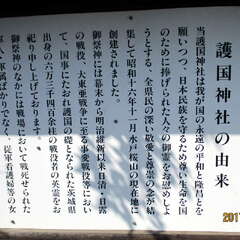 護国神社の由来
当護国神社は我が国の永遠の平和と隆昌とを
願いつつ、日本民族を守るため尊い生命を国
のために捧げられた人々の御霊をお慰めしよ
うとする、全県民の深い敬愛と感謝の念が結
集して昭和十六年十一月水戸桜山の現在地に
創建されました。
御祭神には幕末から明治維新以来日清・日露
の戦役、大東亜戦争に至る事変戦役等におい
て、国事にたおれ護国の礎となられた茨城県
出身の六万三千四百余柱の戦没者の英霊をお
祀り申し上げております。
御祭神のなかには戦場において戦死せられた
軍人軍属ばかりでなく、従軍看護婦等の女
201